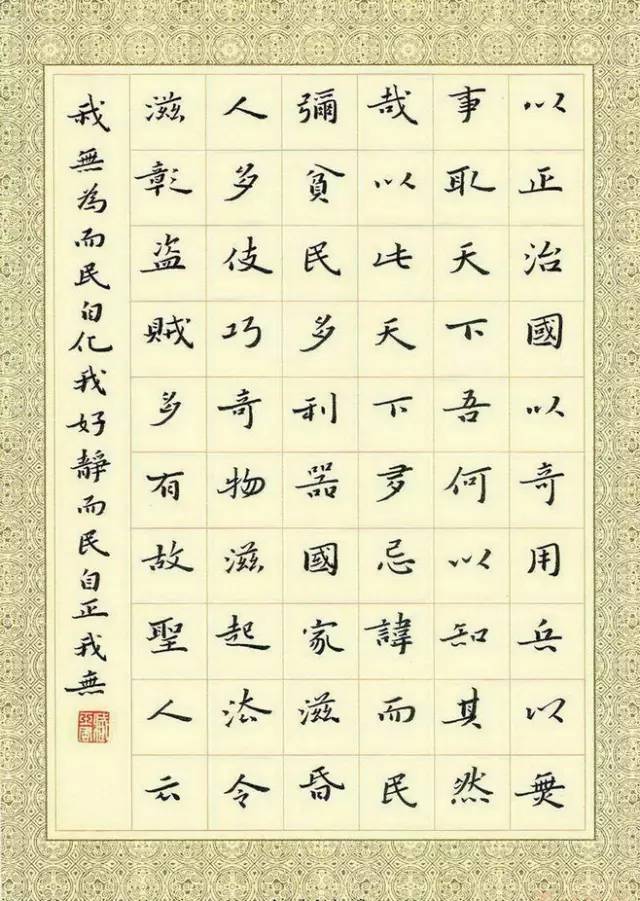 以正治國以奇用兵以無
事取天下吾何以知其然
哉以此天下多忌諱而民
彌貧民多利器國家滋昏
人多伎巧奇物滋起法令
滋彰盗賊多有故聖人云
我無為而民自化我好靜而民自正我無